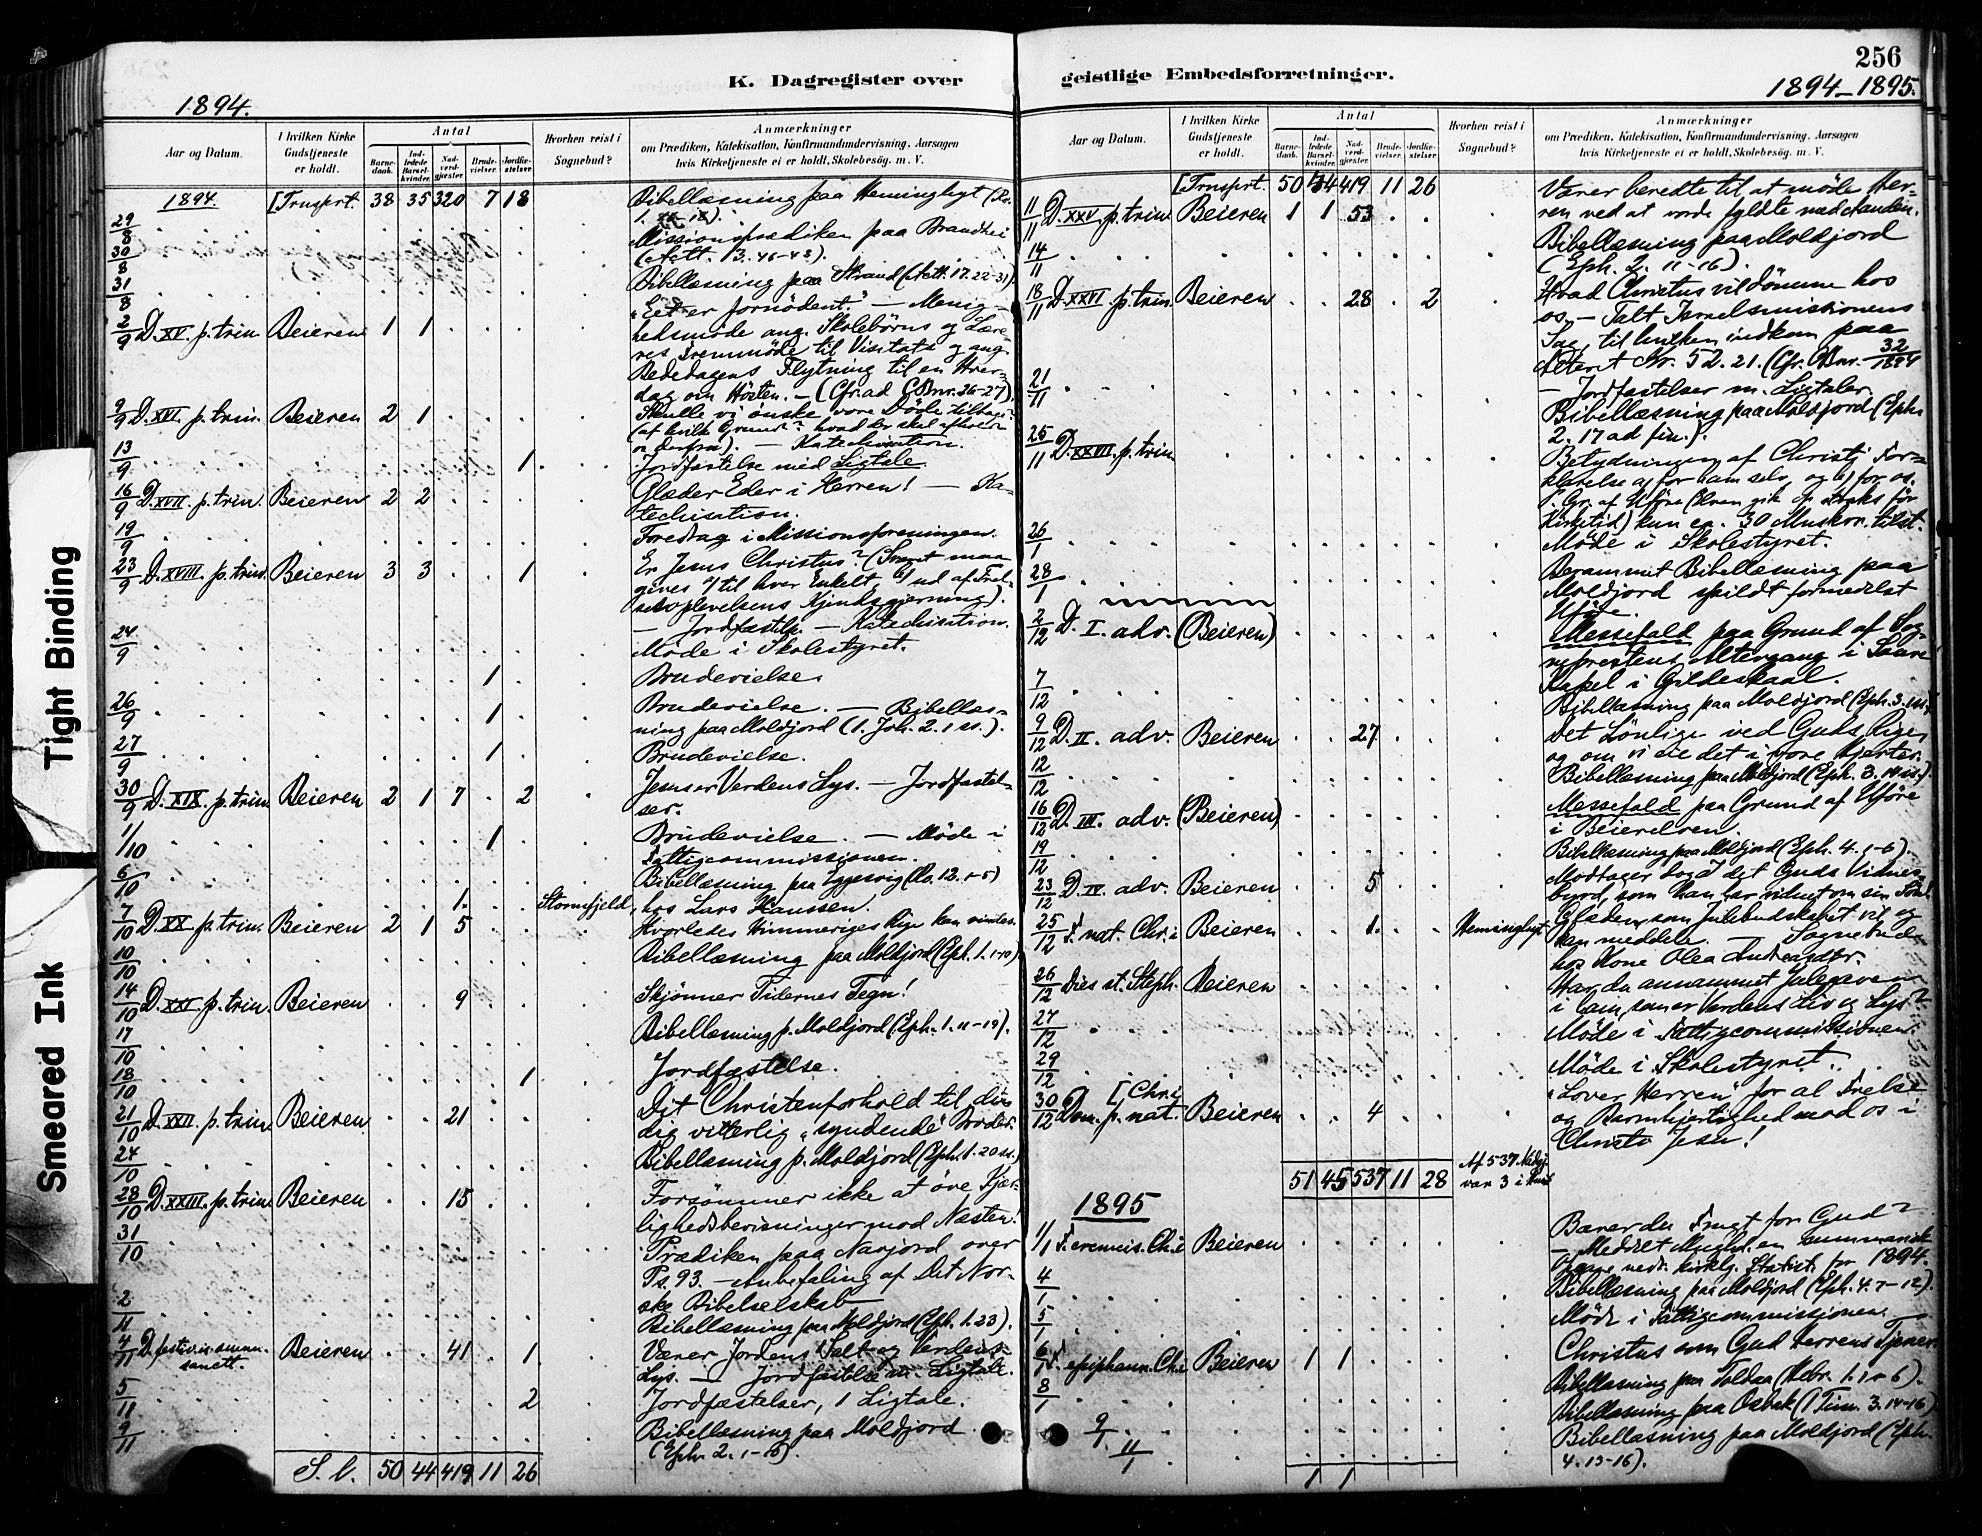 256
K. Dagregister over
geistlige Embedsforretninger.
1894.
1894-1895.
Aar og Datum.
I hvilken Kirke Gudstjeneste er holdt.
Antal
Barne-daab.
Ind-ledede Barsel-kvinder.
Nad-verd-gjæster.
Brude-vielser.
Jordfæ-stelser.
Hvorhen reist i Sognebud?
Anmærkninger
om Prædiken, Katekisation, Konfirmandundervisning, Aarsagen
hvis Kirketjeneste ei er holdt, Skolebesøg. m. V.
1894. [Transprt. 38 35 320 7 18 Bibellæsning paa Hemingligt
29/8 Missionsprædiken paa
30/8 (Matt. 13. 45-48).
31/8 Bibellæsning paa Strand (Matt. 17. 22-31).
2/9 D. XV. p. trin. Beieren 1 1 "Eet er fornødent." — Menig-
hedsmøde ang. Skolebørns og Lære-
res Fremmøde til Visitats og ang.
Bededagens Flytning til en Hver-
dag om Høsten. — (Cfr. ad CBnr. 26-27)
9/9 D. XVI. p. trin. Beieren 2 1 Skulle vi ønske vore Døde tilbage?
(af hvilk Grund?
derfra). — Katechisation.
13/9 1 Jordfæstelse med Ligtale.
16/9 D. XVII. p. trin. Beieren 2 2 Glæder Eder i Herren! — Ka-
techisation.
19/9 Foredrag i Missionsforeningen.
23/9 D. XVIII. p. trin. Beieren 3 3 1 Er Jesus Christus? (Svaret maa
gives a) til hver Enkelt b) ud af Frel-
sesoplevelsens Kjendsgjerning).
— Jordfæstelse. — Katechisation.
24/9 Møde i Skolestyret.
1 Brudevielse.
26/9 1 Brudevielse. — Bibellæs-
ning paa Moldjord (1. Joh. 2. 1 ss.).
27/9 1 Brudevielse.
30/9 D. XIX. p. trin. Beieren 2 1 7 2 Jesus er Verdens Lys. — Jordfæstel-
ser.
1/10 1 Brudevielse. — Møde i
Fattigcommissionen.
6/10 Bibellæsning paa Eggesvig (Ro. 12. 1-5)
1. Stormfjeld, hos Lars Hanssen.
7/10 D. XX. p. trin. Beieren 2 1 5 Hvorledes Himmeriges Rige kan vindes.
10/10 Bibellæsning paa Moldjord (Eph. 1. 1-10).
14/10 D. XXI. p. trin. Beieren 9 Skjønner Tidernes Tegn!
17/10 Bibellæsning p. Moldjord (Eph. 1. 11-19).
18/10 1 Jordfæstelse.
21/10 D. XXII. p. trin. Beieren 21 Dit Christenforhold til din
dig vitterlig "syndende" Broder.
24/10 Bibellæsning p. Moldjord (Eph. 1. 20 ss.)
28/10 D. XXIII. p. trin. Beieren 15 Forsømmer ikke at øve Kjær-
lighedsbevisninger mod Næsten!
31/10 Prædiken paa Navjord over
Ps. 93. — Anbefaling af Det Nor-
ske Bibelselskab
2/11 Bibellæsning paa Moldjord (Eph. 1. 23).
4/11 D. festivis omn. sanct. Beieren 41 1 Værer Jordens Salt og Verdens
Lys. — Jordfæstelse m. Ligtale.
5/11 2 Jordfæstelser, 1 Ligtale.
9/11 Bibellæsning paa Moldjord
(Eph. 2. 1-10).
S. l. 50 44 419 11 26
Aar og Datum.
I hvilken Kirke Gudstjeneste er holdt.
Antal
Barne-daab.
Ind-ledede Barsel-kvinder.
Nad-verd-gjæster.
Brude-vielser.
Jordfæ-stelser.
Hvorhen reist i Sognebud?
Anmærkninger
om Prædiken, Katekisation, Konfirmandundervisning, Aarsagen
hvis Kirketjeneste ei er holdt, Skolebesøg. m. V.
[Transprt. 50 44 419 11 26 Værer beredte til at møde Her-
11/11 D. XXV. p. trin. Beieren 1 1 53 ren ved at vorde fyldte med Aanden.
14/11 Bibellæsning paa Moldjord
(Eph. 2. 11-16).
18/11 D. XXVI. p. trin. Beieren 28 2 Hvad Christus vil dømme hos
os. — Talt Israelsmissionens
Sag, til hvilken indkom paa
Alteret Kr. 52.21. (Cfr. Bnr. 32/1894
— Jordfæstelser m. Ligtaler
21/11 Bibellæsning paa Moldjord (Eph.
2. 17 ad fin.).
25/11 D. XXVII. p. trin. Betydningen af Christi For-
klarelse a) for ham selv, og b) for os.
P. Gr. af Uføre (Elven gik op straks før
Kirketid) kun ca. 30 Msker. tilst.
26/1 Møde i Skolestyret.
28/1 Berammet Bibellæsning paa
Moldjord spildt formedelst
Uføre.
2/12 D. I. adv. (Beieren) Messefald paa Grund af Sog-
neprestens Altergang i
Kapel i Gildeskaal.
7/12 Bibellæsning paa Moldjord (Eph. 3. 1 ss.)
9/12 D. II. adv. Beieren 27 Det Lønlige ved Guds Rige,
og om vi eie det i vore Hjerter.
12/12 Bibellæsning paa Moldjord (Eph. 3. 14 ss.).
16/12 D. III. adv. (Beieren) Messefald paa Grund af Uføre
i Beierelven.
19/12 Bibellæsning paa Moldjord (Eph. 4. 1-6).
23/12 D. IV. adv. Beieren 5 Modtager dog I det Guds Vidnes-
byrd, som Han har vidnet om sin Søn!
25/12 F. nat. Chri. Beieren 1. Hemingligt Glæden, som Julebudskabet vil og
kan meddele. — Sognebud
hos Kone Olea Andreasdtr.
26/12 Dies st. Steph. Beieren Har du annammet Julegaven
i ham, som er Verdens Liv og Lys?
27/12 Møde i Fattigcommissionen.
29/12 Møde i Skolestyret.
30/12 Dom. p. nat. [Chri Beieren 4 "Lover Herren" for al Frelse
og Barmhjertighed mod os i
Christo Jesu!
51 45 537 11 28 Af 537 Nadvg.
var 3 i Huus
1895
1/1 F. circumcis. Ch.i Beieren Bærer du Frugt for Gud?
— Meddelt Mnghd. en summarisk
kirkelg. Statist. for 1894.
4/1 Bibellæsning paa Moldjord (Eph. 4. 7-12).
5/1 Møde i Fattigcommissionen.
6/1 F. epiphan. Ch.i Beieren 1 1 Christus som Gud Herrens Tjener.
8/1 Bibellæsning paa Tollaa (Hebr. 1. 1-6).
9/1 Bibellæsning paa Osbak (1 Tim. 3. 14-16)
11/1 Bibellæsning paa Moldjord (Eph.
4. 13-16).
1 1
Tight Binding
Smeared Ink